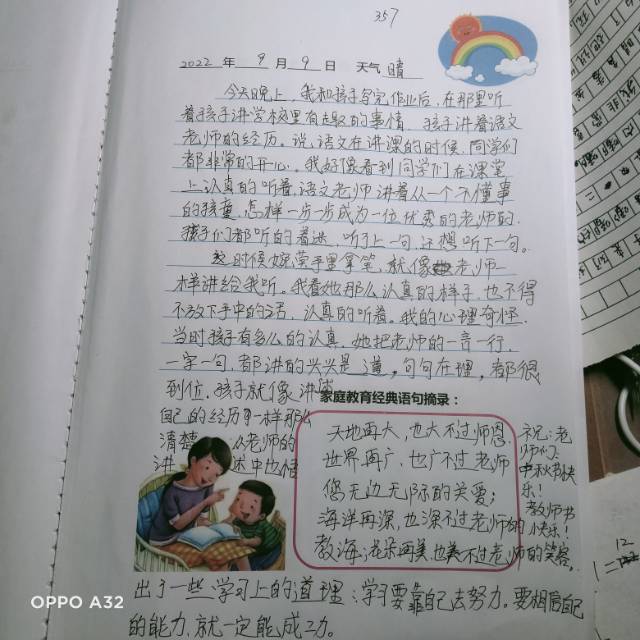 357
2022 年 9 月 9 日 天气 晴
今天晚上，我和孩子写完作业后，在那里听
着孩子讲学校里有趣的事情，孩子讲着语文
老师的经历。说，语文在讲课的时候，同学们
都非常的开心，我好像看到同学们在课堂
上认真的听着，语文老师讲着从一个不懂事
的孩童，怎样一步一步成为一位优秀的老师的，
孩子们都听的着迷，听了上一句，还想听下一句。
时候她 手里拿笔，就像 老师一
样讲给我听。我看她那么认真的样子，也不得
不放下手中的活，认真的听着。我的心理奇怪，
当时孩子有多么的认真，她把老师的一言一行，
一字一句，都讲的头头是道，句句在理，都很
到位，孩子就像讲述
自己的经历一样那么
清楚 从老师的
讲 述中也悟
家庭教育经典语句摘录：
天地再大，也大不过师恩，
世界再广，也广不过老师
您无边无际的关爱；
海洋再深，也深不过老师的
教诲；花朵再美，也美不过老师的笑容，
祝：老
师们：
中秋节快
乐！
教师节
快乐！
出了一些学习上的道理：学习要靠自己去努力。要相信自己
的能力，就一定能成功。
12
OPPO A32